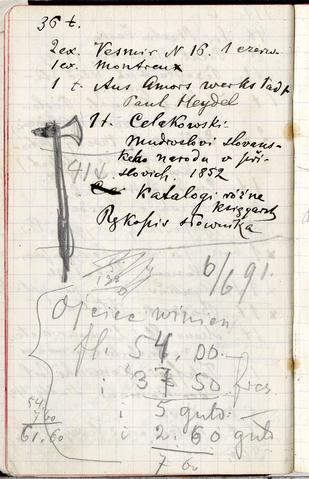 36 t.
2 ex. Vesmir N 16. 1 czerw.
1 ex. Montreux
1 t. Aus Amors werkstadt
Paul Heydel
1 t. Celakowski
Mudroslovi slovans-
keho narodu v při-
slovich, 1852
41 t
katalogi różne
księgarsk
Rękopis słownika
6/6 91.
138
0
Ojciec winien
fl. 54. 00.
i 37 50 frcs.
i 5 guld.
i 2. 60 guld
7 60
54.
7 60
61.60